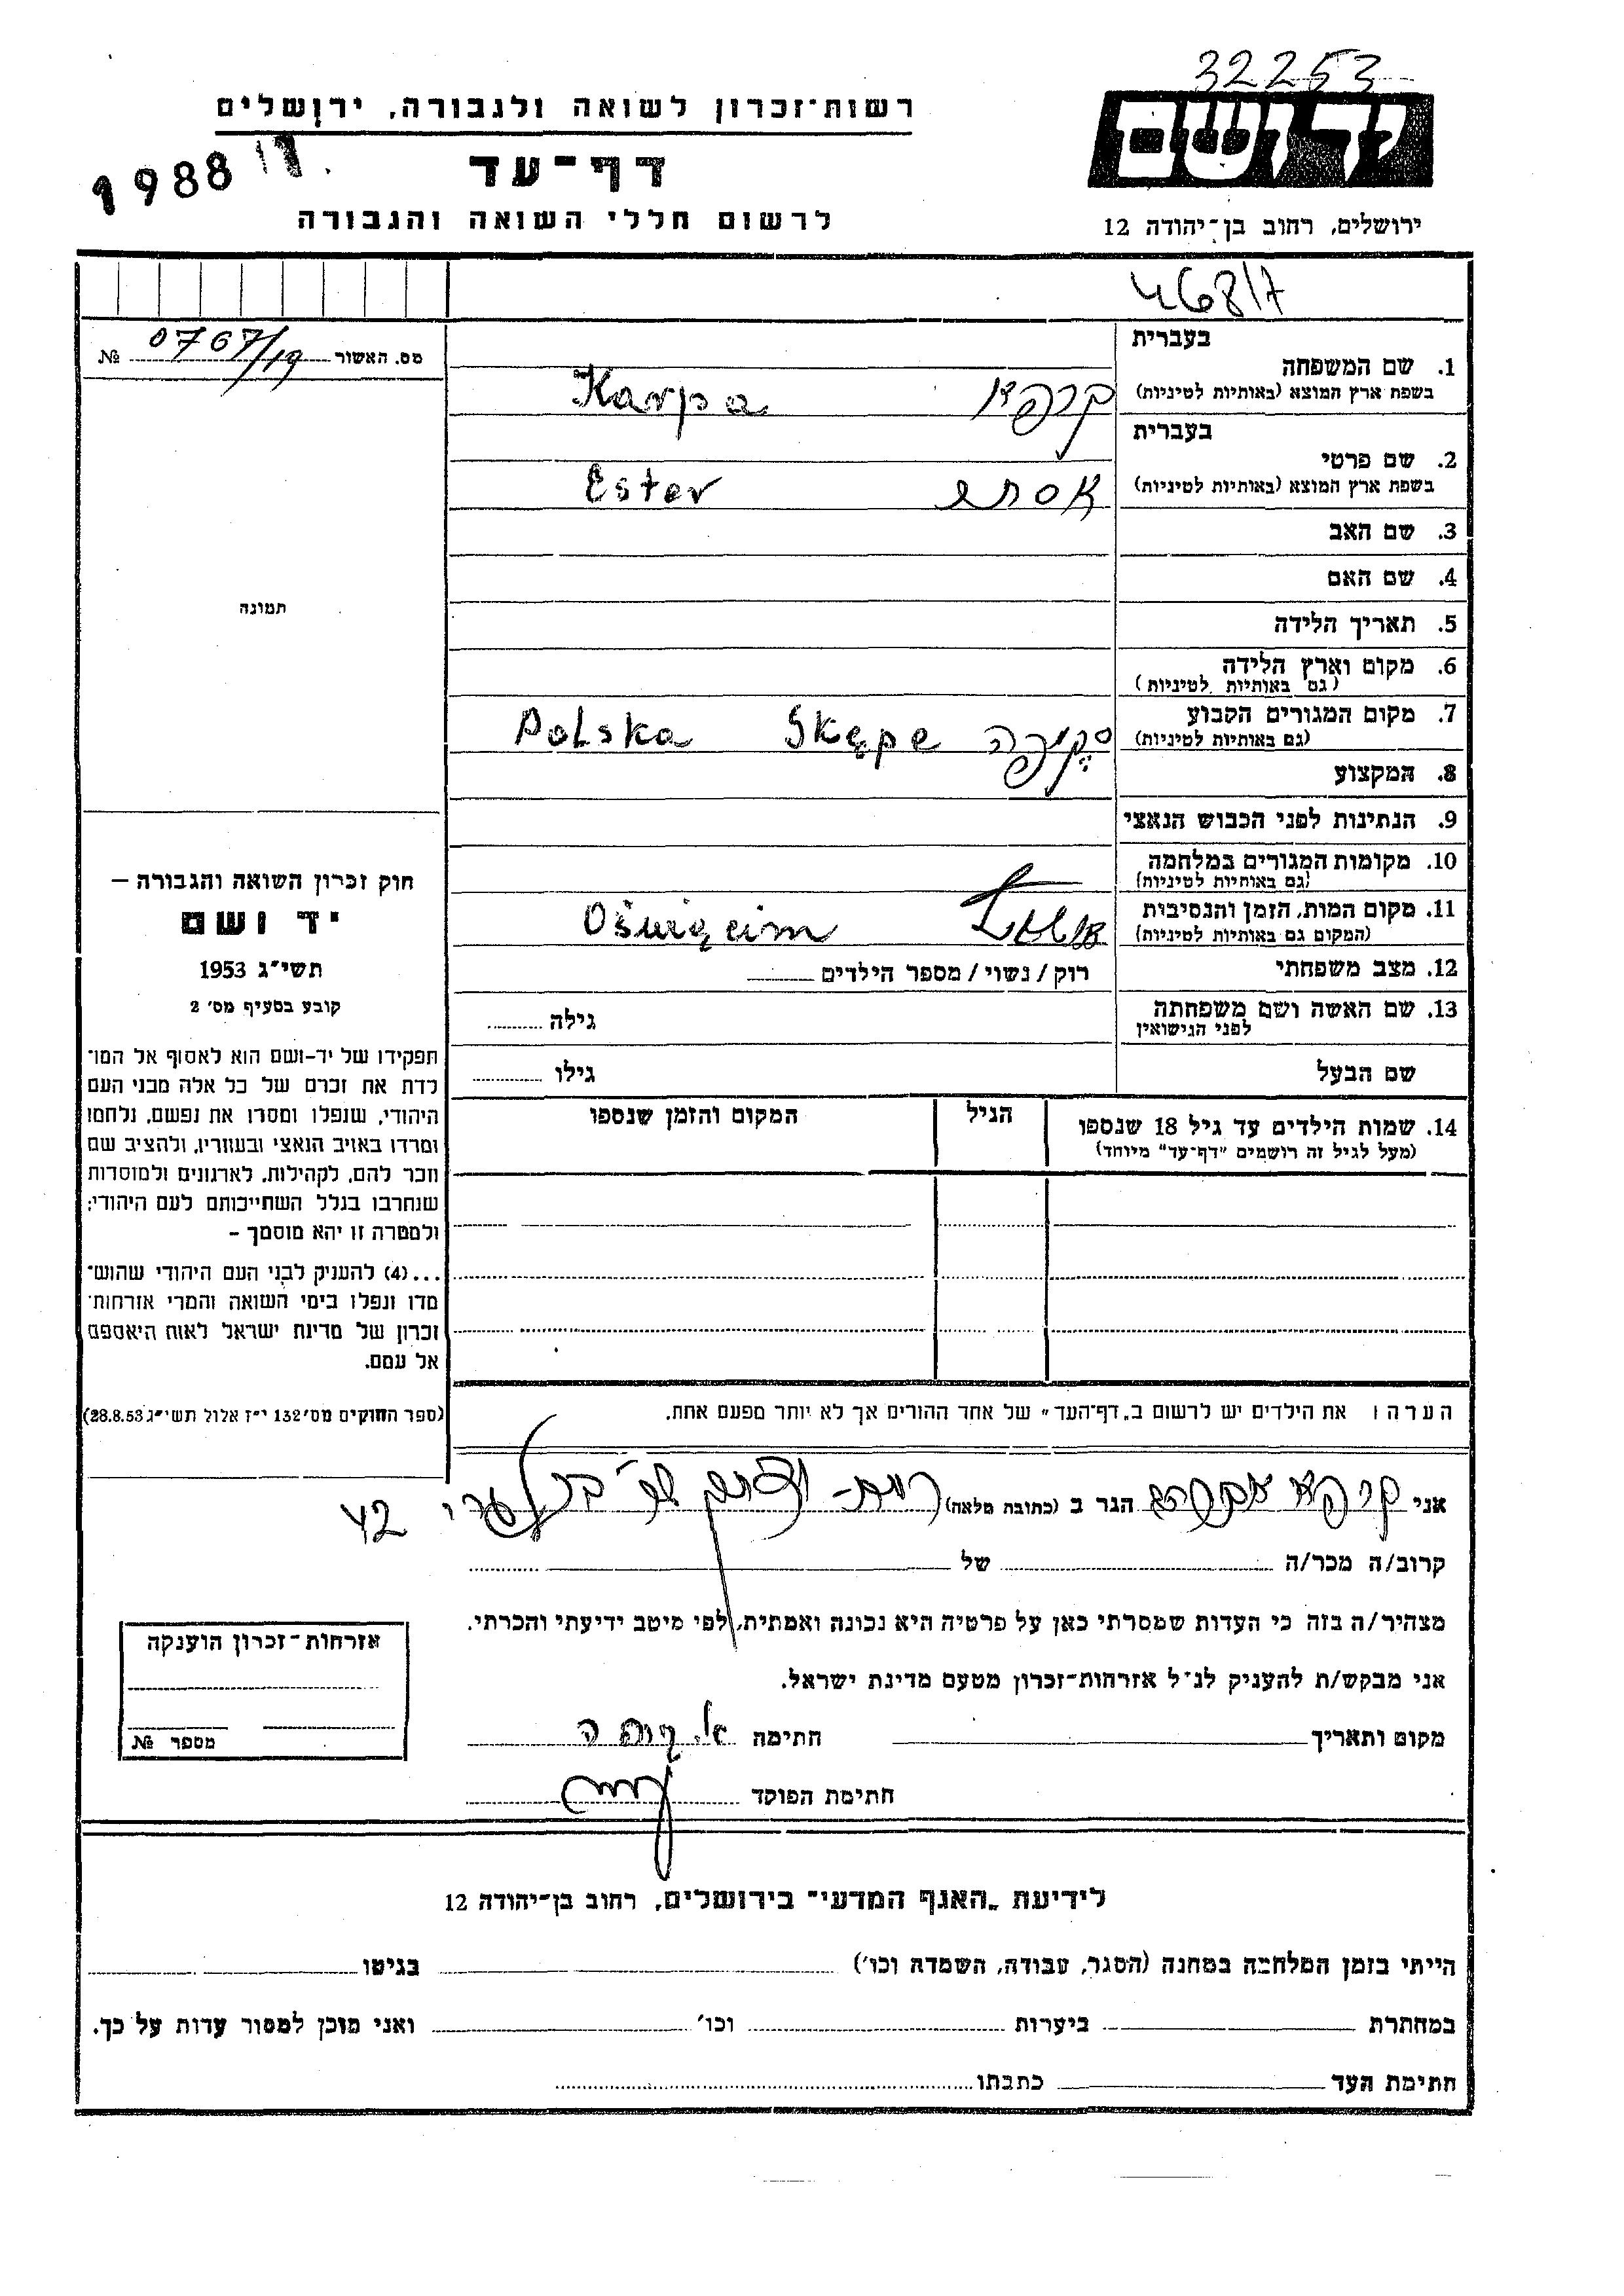 32253
רשות־זכרון לשואה ולגבורה, ירושלים
יד ושם
1988
דף־עד
לרשום חללי השואה והגבורה
ירושלים, רחוב בן־יהודה 12
468/7
מס. האשור 0767/19 №
בעברית
1. שם המשפחה
בשפת ארץ המוצא (באותיות לטיניות)
קרפא Karpa
בעברית
2. שם פרטי
בשפת ארץ המוצא (באותיות לטיניות)
אסתר Ester
3. שם האב
4. שם האם
תמונה
5. תאריך הלידה
6. מקום וארץ הלידה
(גם באותיות לטיניות)
7. מקום המגורים הקבוע
(גם באותיות לטיניות)
Polska Skępe
8. המקצוע
9. הנתינות לפני הכבוש הנאצי
10. מקומות המגורים במלחמה
(גם באותיות לטיניות)
11. מקום המות, הזמן והנסיבות
(המקום גם באותיות לטיניות)
Oświęcim
12. מצב משפחתי רוק / נשוי / מספר הילדים
13. שם האשה ושם משפחתה
לפני הנישואין
גילה
שם הבעל גילו
14. שמות הילדים עד גיל 18 שנספו
(מעל לגיל זה רושמים "דף־עד" מיוחד)
הגיל
המקום והזמן שנספו
חוק זכרון השואה והגבורה –
יד ושם
תשי"ג 1953
קובע בסעיף מס' 2
תפקידו של יד-ושם הוא לאסוף אל המו־
לדת את זכרם של כל אלה מבני העם
היהודי, שנפלו ומסרו את נפשם, נלחמו
ומרדו באויב הנאצי ובעוזריו, ולהציב שם
וזכר להם, לקהילות, לארגונים ולמוסדות
שנחרבו בגלל השתייכותם לעם היהודי;
ולמטרה זו יהא מוסמך –
...(4) להעניק לבני העם היהודי שהוש־
מדו ונפלו בימי השואה והמרי אזרחות־
זכרון של מדינת ישראל לאות היאספם
אל עמם.
(ספר החוקים מס' 132 י"ז אלול תשי"ג 28.8.53)
הערה: את הילדים יש לרשום ב„דף־העד" של אחד ההורים אך לא יותר מפעם אחת.
אני קרפא הגר ב (כתובת מלאה) 42
קרוב/ה מכר/ה של
מצהיר/ה בזה כי העדות שמסרתי כאן על פרטיה היא נכונה ואמתית, לפי מיטב ידיעתי והכרתי.
אני מבקש/ת להעניק לנ"ל אזרחות־זכרון מטעם מדינת ישראל.
מקום ותאריך חתימה
חתימת הפוקד
אזרחות־זכרון הוענקה
מספר №
לידיעת „האגף המדעי" בירושלים, רחוב בן־יהודה 12
הייתי בזמן המלחמה במחנה (הסגר, עבודה, השמדה וכו') בגיטו
במחתרת ביערות וכו' ואני מוכן למסור עדות על כך.
חתימת העד כתבתו